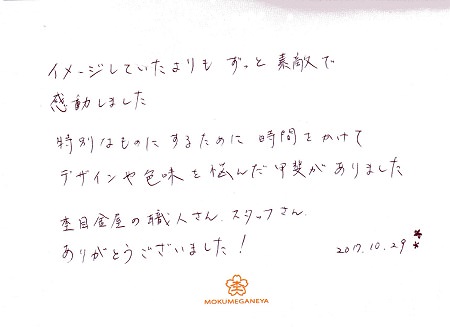 イメージしていたよりも ずっと 素敵で
感動しました
特別なものに するために 時間をかけて
デザインや色味を悩んだ甲斐がありました
杢目金屋の職人さん、スタッフさん、
ありがとうございました!
2017.10.29
MOKUMEGANEYA